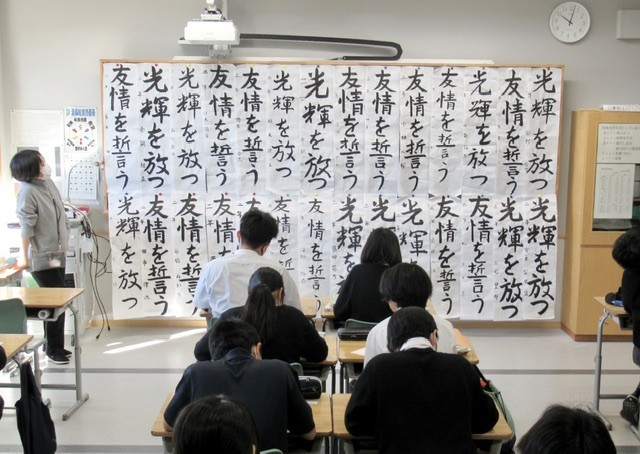 光輝を放つ
友情を誓う
光輝を放つ
友情を誓う
友情を誓う
友情を誓う
友情を誓う
光輝を放つ
光輝を放つ
友情を誓う
友情を誓う
光輝を放つ
光輝を放つ
友情を誓う
光輝を放つ
光輝を放つ
友情を誓う
友情を誓う
光輝
光
光輝を
友情を誓う
友情を誓
友情
友情
友情を誓う
友情を誓う
光輝を放つ